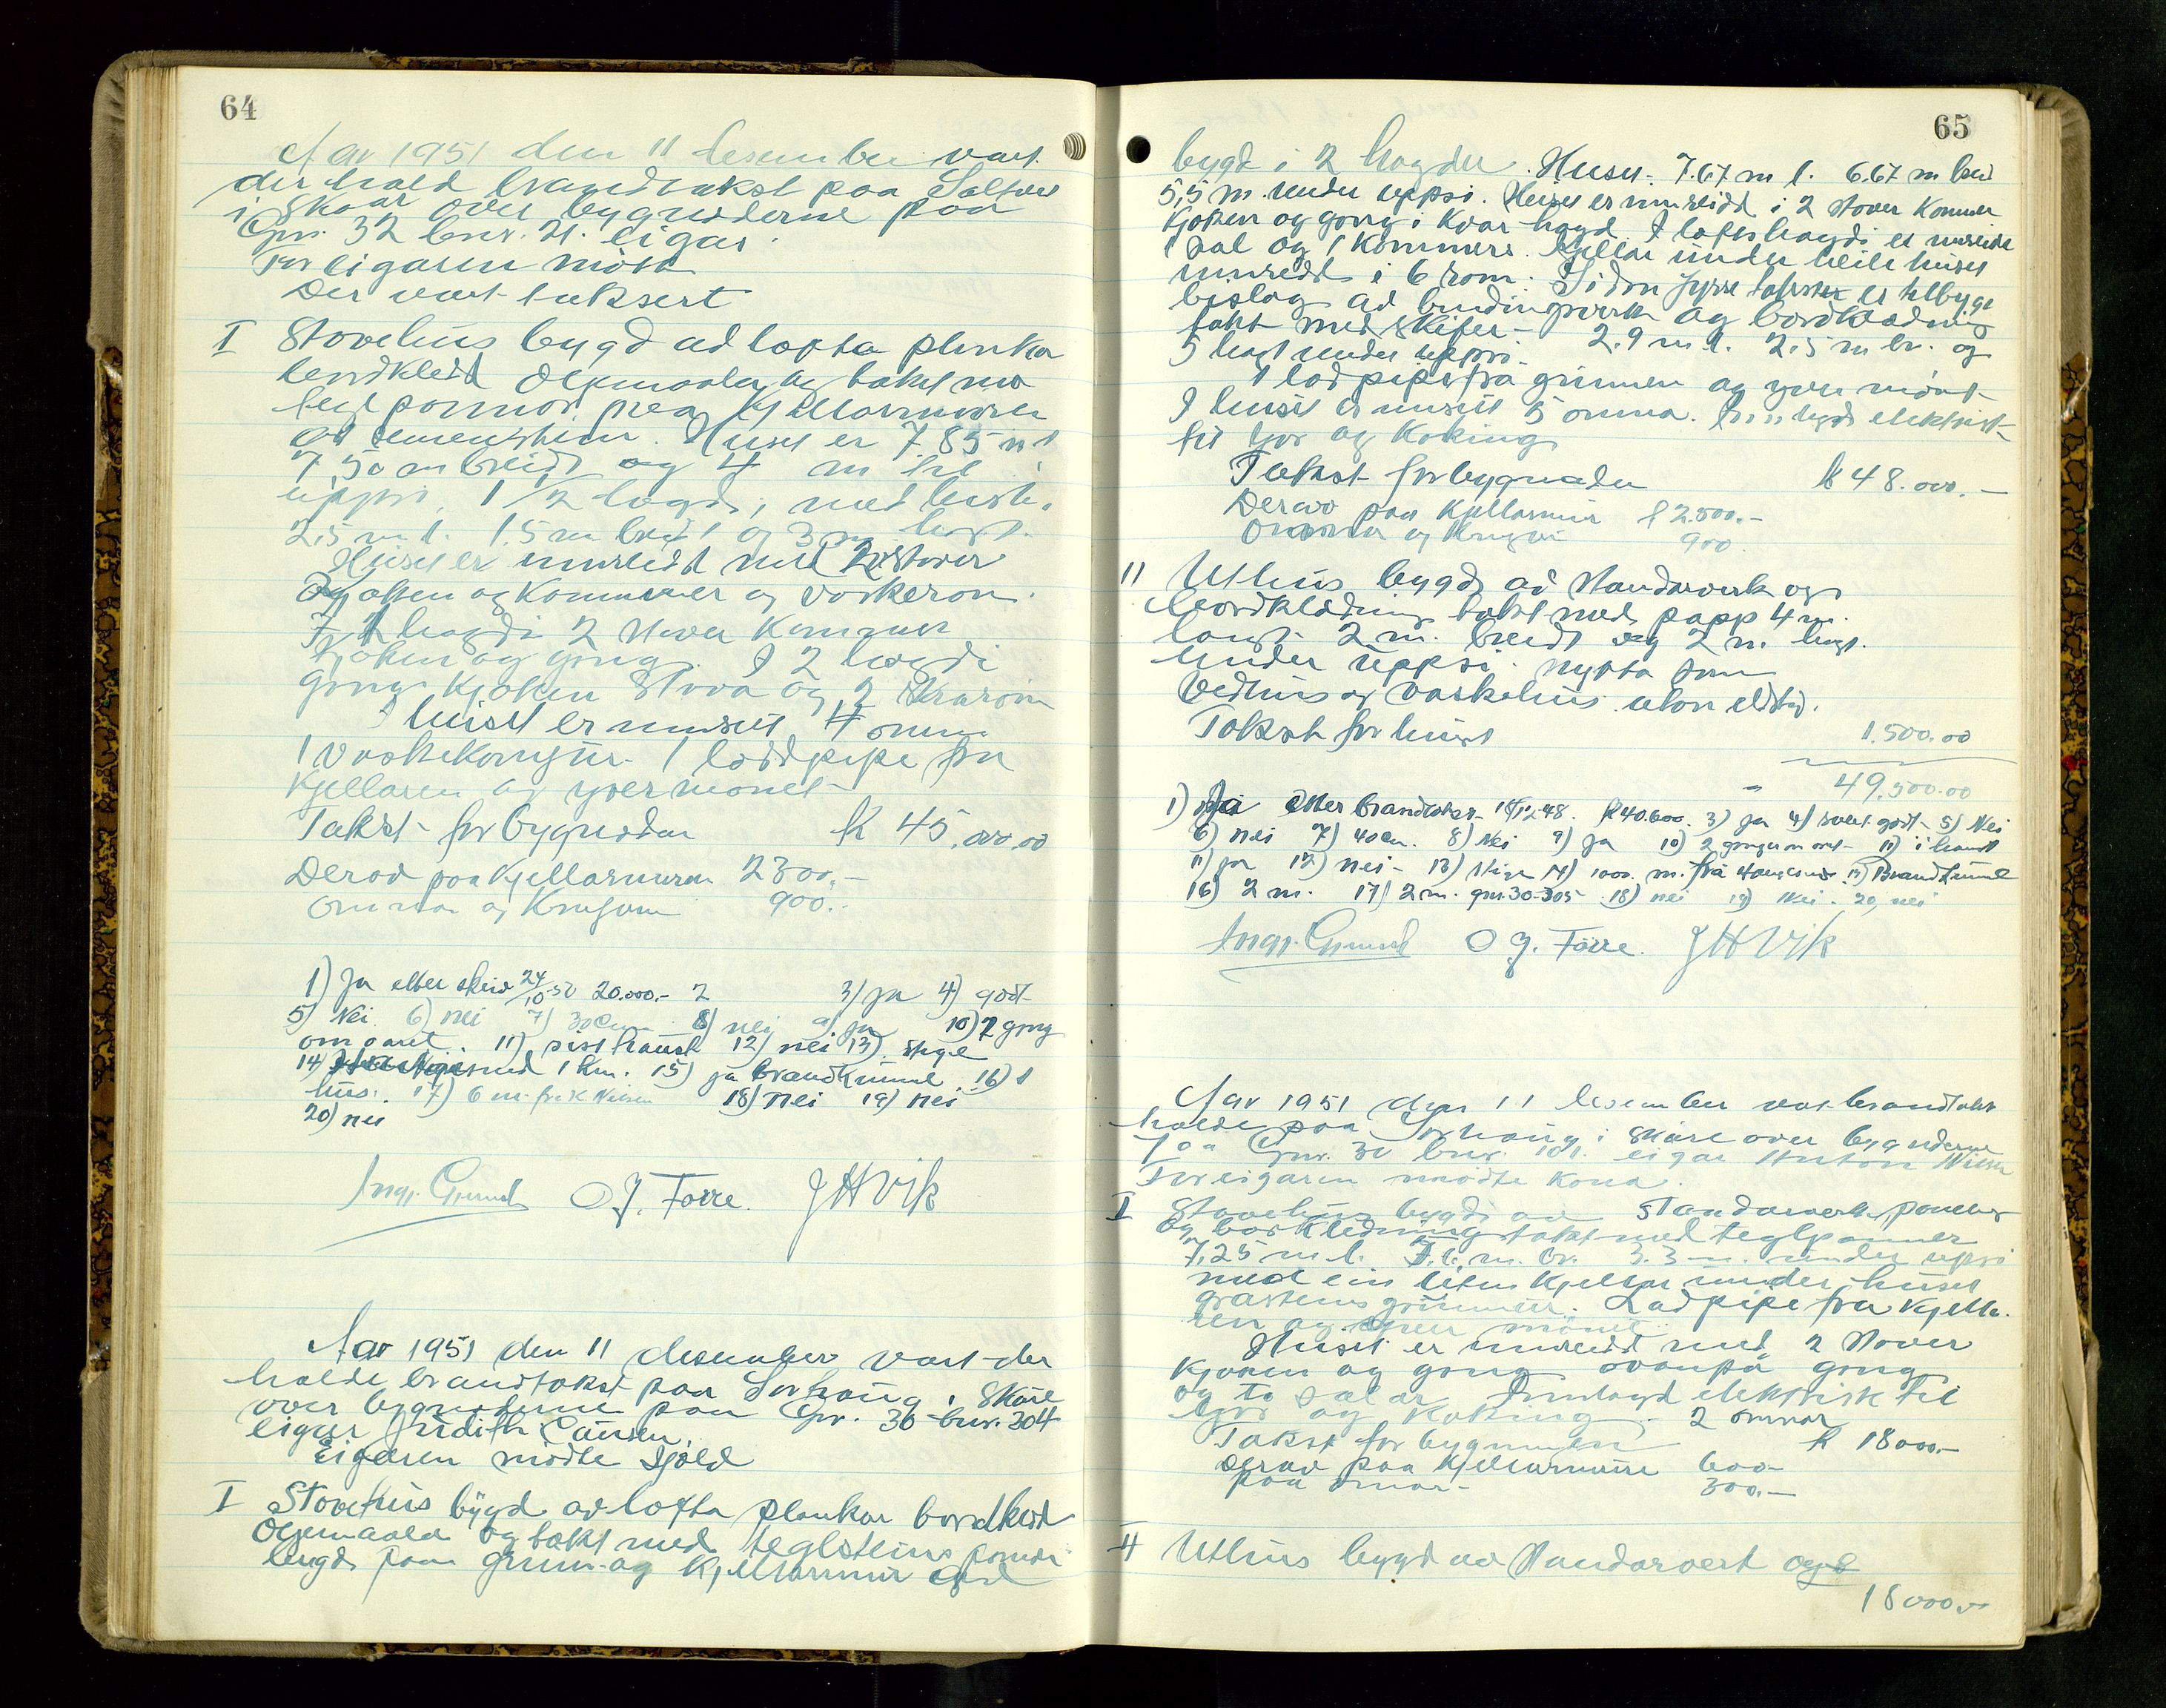 64
Aar 1951 den 11 desember vart
der hald brandtakst paa Saltves
i Skaar over bygnederne paa
Gnr. 32 bnr. 21. eigar.
For eigaren møtte
Der vart taksert
I Stovehus bygd ad lofta plankar
bordkledd Oljemaala og takt med
tegl pannor, paa Kjellarmuren
ad sementstein. Huset er 7.85 m l
7,50 m breidt og 4 m til
uppsi, 1 1/2 høgd, med
2,5 m l. 1.5 m breidt og 3 m høgt.
Huset er innreidt med 2 stover
Kjøken og Kommer og vaskerom.
I 1 høgdi 2 stover Kommer
Kjøken og gong. I 2 høgdi
gong Kjøken Stova og 2
I huset er innsett 4 omnar
1 vaskekomfyr. 1 loddpipe fra
Kjellaren og yver mønet
Takst for bygnaden kr 45.000,00
Derav paa Kjellarmuren 2300,-
Omnar og Komfyr 900.-
1) Ja etter skriv 24/10-50 20.000.- 2 3) Ja 4) godt
5) Nei 6) nei 7) 30 cm 8) nei 9) ja 10) 2 gong
om aaret. 11) sist haust 12) nei 13) stige
14) 1 km. 15) ja Brandkumme. 16) 1
hus. 17) 6 m. fr. K Nilsen 18) nei 19) nei
20) nei
Ingv. O J. Førre. J H Vik
Aar 1951 den 11 desember vart der
halde brandtakst paa Sørhaug i Skåre
over bygnederne paa Gnr. 36 bnr. 304
eigar Judith Larsen.
Eigaren møtte sjøld
I Stovehus bygd av lofta plankar bordkledd
Oljemaala og takt med teglsteins pannor
bygd paa grunn og Kjellarmur
65
bygd i 2 høgder. Huset: 7.67 m l. 6.67 m breid
5,5 m. under uppsi. Huset er innreidd i 2 stover Kommer
Kjøken og gong i Kvar høgd. I loftshøgdi er innreidd
1 Sal og 1 Kommers. Kjellar under heile huset
innredd i 6 rom. Sidan fyrre takster er tilbygt
bislag ad bindingsverk og bordklædning
takt med skifer - 2.9 m l. 2.5 m br. og
5 høgt under uppsi.
1 lodpipe frå grunnen og yver mønet
I huset er innsett 5 omnar. Innlagd elektrisk
til ljos og Koking
Takst for bygnaden kr 48.000.-
Derav paa Kjellarmur kr 2.500.-
Omnar og Komfyr 900
II Uthus bygd ad Standarverk og
bordklædning takt med papp 4 m.
langt 2 m. breidt og 2 m høgt.
under uppsi. nytta som
Vedhus og vaskehus utan eldsted.
Takst for huset 1.500.00
49.500.00
1) Ja etter Brandtakst 16/12-48. kr 40.600. 3) Ja 4) svert godt 5) Nei
6) nei 7) 40 cm. 8) Nei 9) Ja 10) 2 gonger om aaret 11) i haust
11) ja 12) nei - 13) Stige 14) 1000. m. frå 15) Brandkumme
16) 2 m. 17) 2 m. gnr. 30-305 18) nei 19) Nei. 20) nei
Ingv. O J. Førre. J H Vik
Aar 1951 den 11 desember vart brandtakst
halde paa Sørhaug i Skåre over bygnederne
paa Gnr. 30 bnr. 101. eigar Anton Nilsen
For eigaren møtte Kona.
I Stovehus bygd av Standarverk, paneling
og bordkledning takt med teglpanner
7,25 m l. 7.1 m. br. 3.3 m. under uppsi
med ein liten Kjellar under huset
grasteins grunnmur. Lodpipe fra Kjella-
ren og yver mønet.
Huset er innreidd med 2 Stover
Kjøken og gong ovanpå gong
og to salar. Innlagd elektrisk til
ljos og Koking. 2 omnar
Takst for bygnaden kr 18000.-
Derav paa Kjellarmure 600-
paa omnar - 300.-
II Uthus bygd av Standarverk og
18000.-